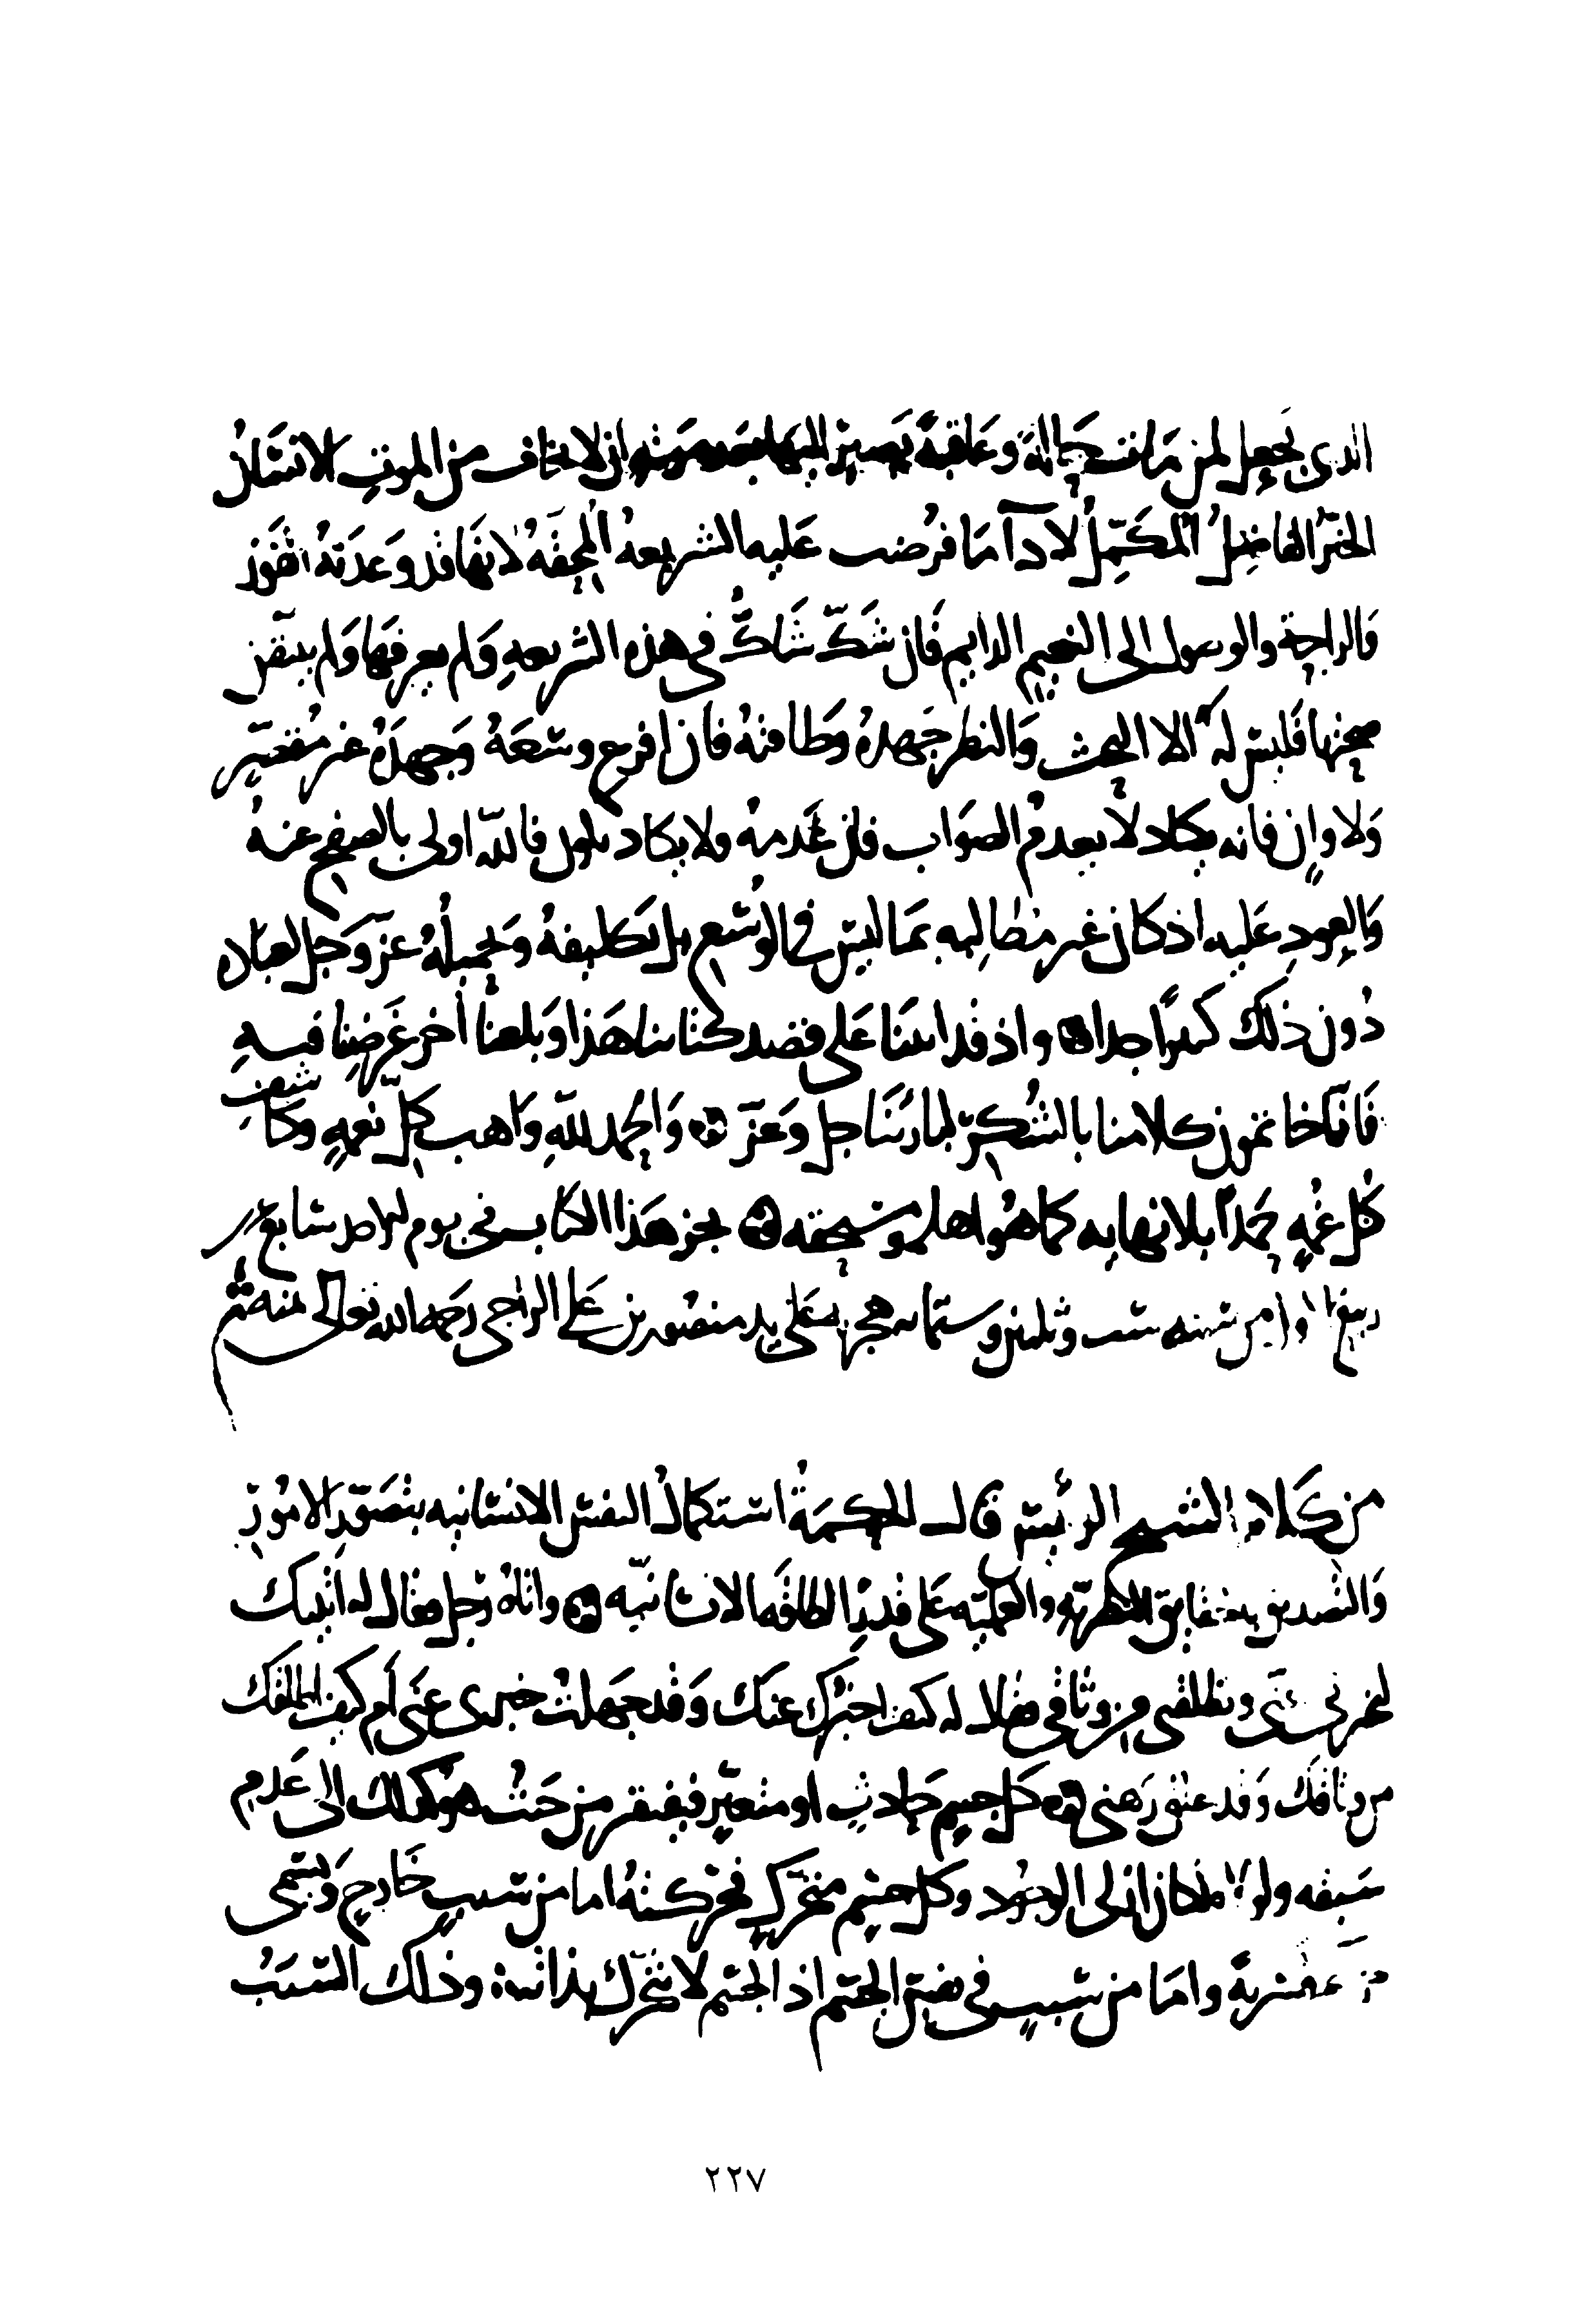 الذي يجعل لمن مات حالة وعاقبة يصير اليها بعد موته ان لا يخاف من الموت الانسان
الخير الفاضل المكمل لادآ ما فرضت عليه الشريعة المحقة لانها قد وعدته الفوز
والراحة والوصول الى النعيم الدايم فان شك شاك في هذه الشريعة ولم يعرفها ولم يتيقن
صحتها فليس له الا البحث والنظر جهده وطاقته فان افرغ وسعه وجهده غير مقصر
ولا وان فانه يكاد لا يعدم الصواب فان عدمه ولا يكاد يكون فالله اولى بالصفح عنه
والعود عليه اذ كان غير مطالبه بما ليس في الوسع بل تكليفه وتحميله عز وجل لعباده
دون ذلك كثيرا جدا واذ قد اتينا على قصد كتابنا هذا وبلغنا اخر غرضنا فيه
فانا خاتمون كلامنا بالشكر لربنا جل وعز والحمد لله واهب كل نعمة وكاشف
كل غمة حمدا بلا نهاية كما هو اهله ومستحقه نجز هذا الكتاب في يوم الاحد سابع
ربيع الاول من سنه ست وثلثين وستمايه هجريه على يد منصور بن علي الراجي رحمه الله تعالى
من كلام الشيخ الرئيس قال الحكمة استكمال النفس الانسانيه بتصور الامور
والتصديق بحقايق النظرية والعملية على قدر الطاقة الانسانية واتاه رجل فقال له اتيتك
لتخبرني عني وتطلقني من وثاقي فقال له كيف اخبرك عنك وقد جهلت خبري عني ام كيف اطلقك
من وثاقك وقد عنق رهني كل جسم حادث او متغير فيفتقر من حيث هو كذلك الى عدم
سبقه ولولا لكان ازلي الوجود وكل جسم متحرك فحركته اما من سبب خارج وتسمى
قسرية واما من سبب في نفس الجسم اذ الجسم لا يتحرك بذاته وذلك السبب
٢٢٧